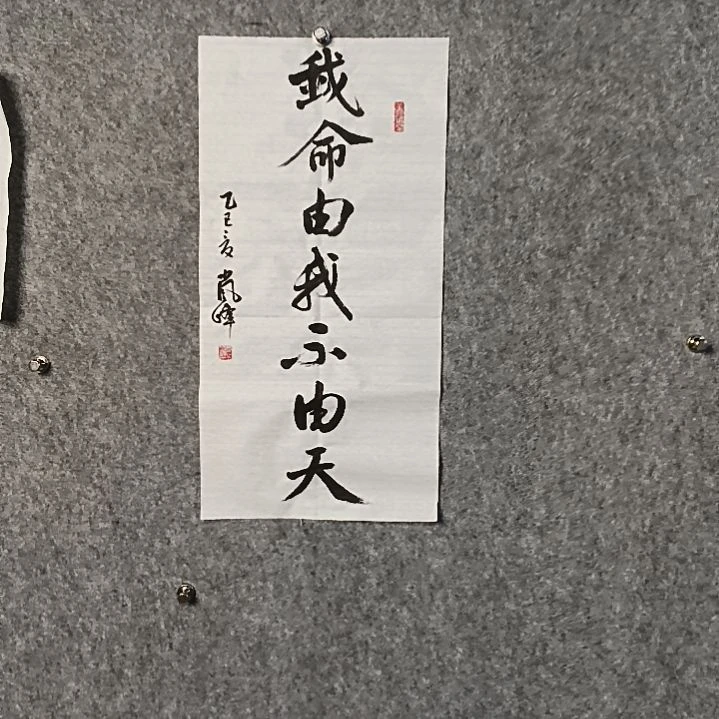 我命由我不由天
乙巳夏 嵐峰